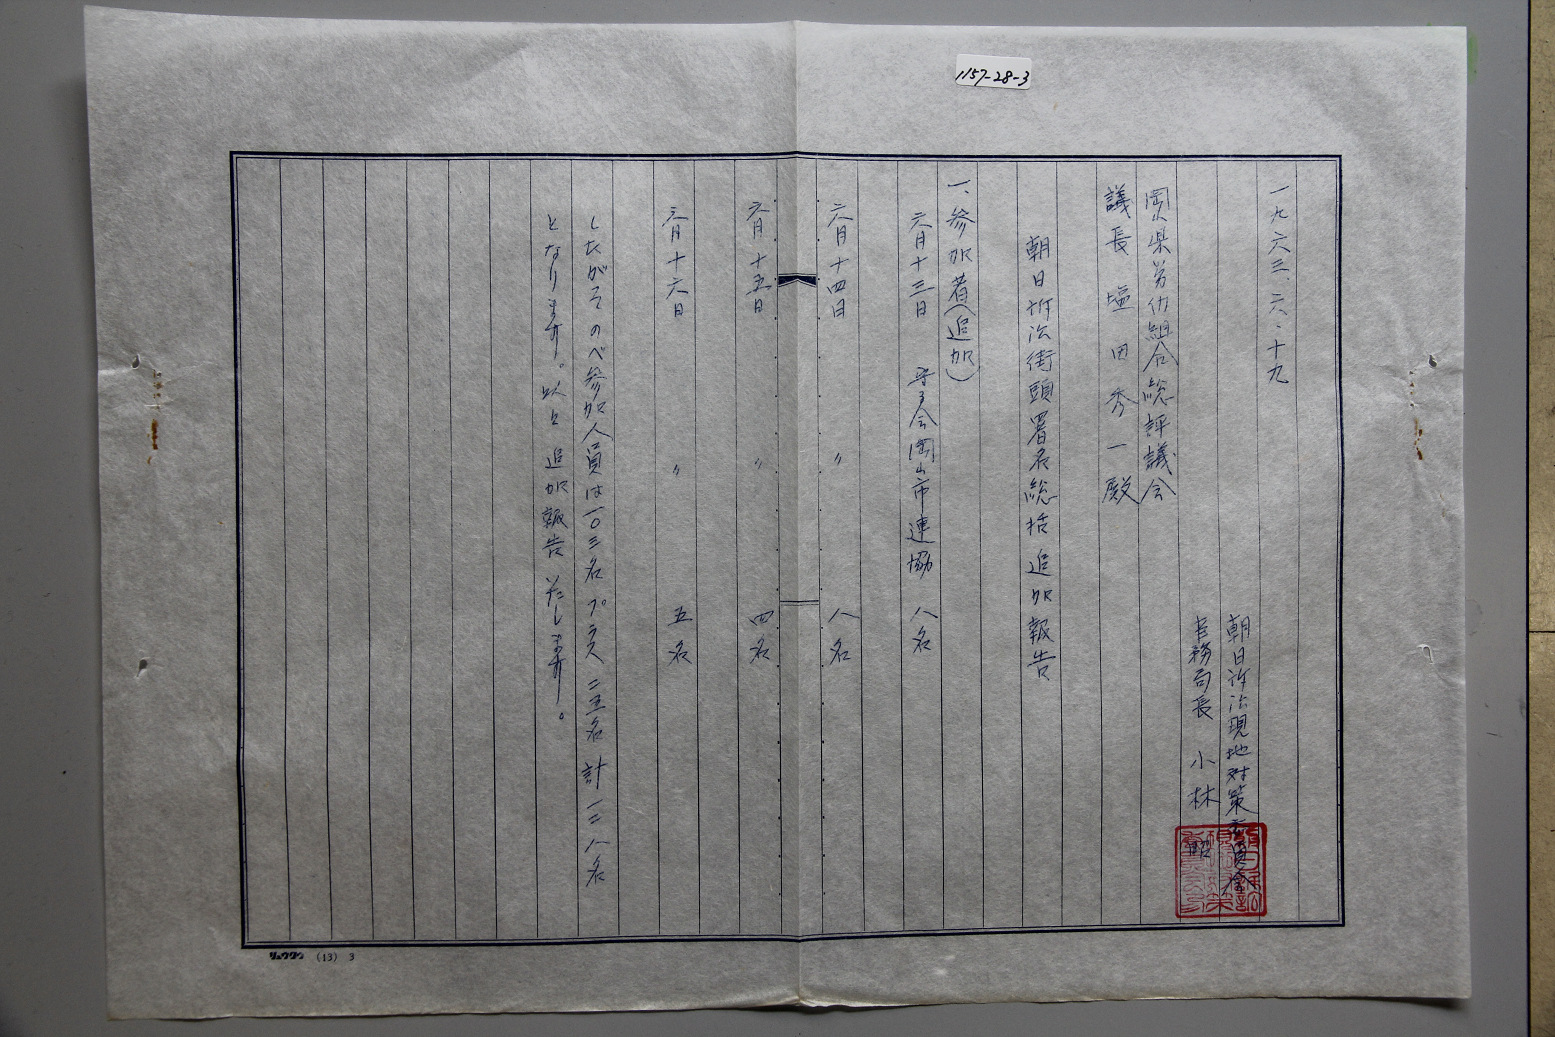 1157-28-3
一九六三、六・十九
朝日訴訟現地対策委員会
事務局長 小林 昭
岡山県労仂組合総評議会
議長 塩田秀一殿
朝日訴訟街頭署名総括追加報告
一、参加者(追加)
六月十三日 守る会岡山市連協 八名
六月十四日 〃 八名
六月十五日 〃 四名
六月十六日 〃 五名
したがってのべ参加人員は一〇三名プラス二五名計一二八名
となります。以上追加報告いたします。
リュウグウ (13) 3